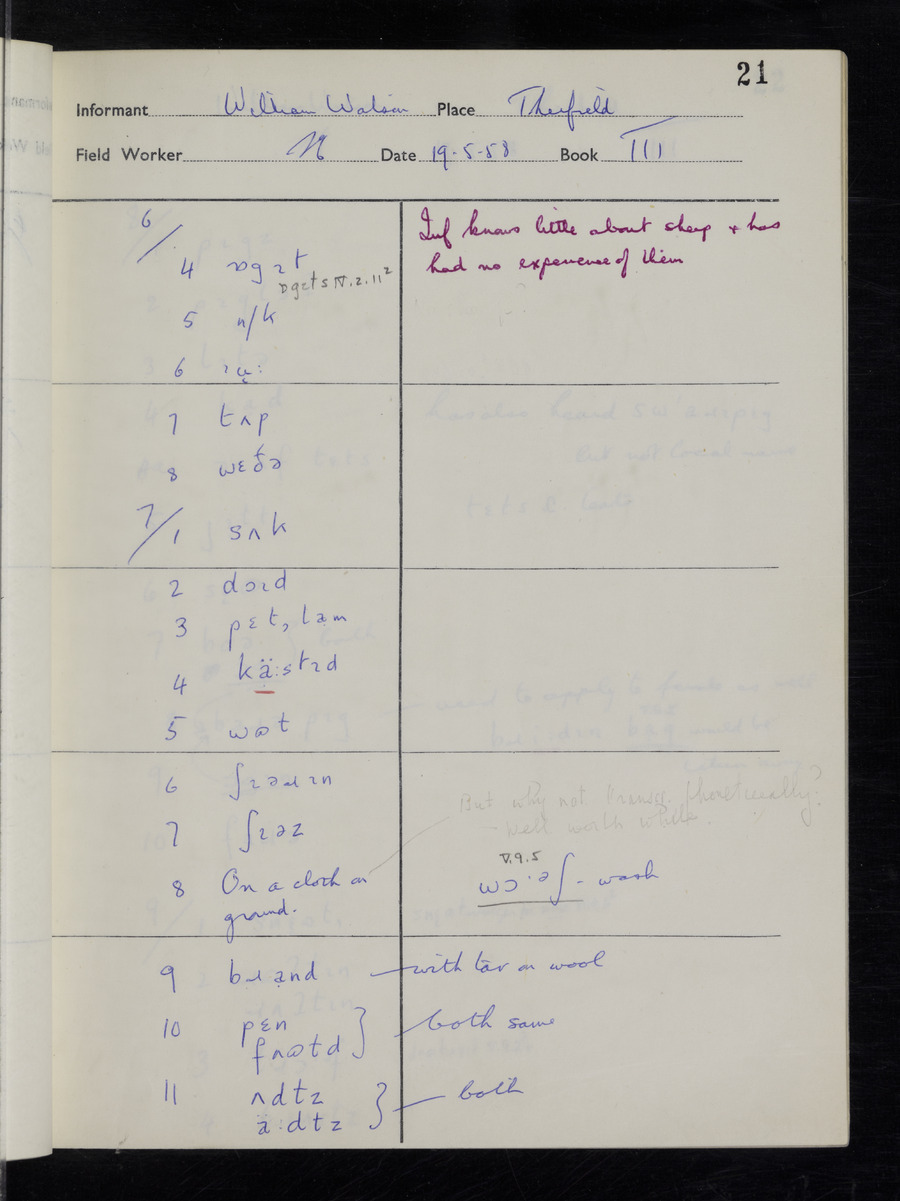 21
Informant William Watson Place Therfield
Field Worker N Date 19.5.58 Book III
6/.
Inf knows little about sheep + has
had no experience of them
4 ɒgɪt
ɒgɪts IV.2.11²
5 n/k
6 ɹʉ:
7 tʌp
8 wɛðə
7/1 sʌk
2 dɔɪd
3 pɛt, lam
4 kä:stɪd
5 wɒt
6 ʃɪəɹɪn
But why not transcr. phonetically?
– Well worth while.
7 ʃɪəz
8 On a cloth on
ground.
V.9.5
wɔ·əʃ - wash
9 bɹand — with tar on wool
10 pɛn
foʊɫd } both same
11 ʌdɫz
ä:dɫz } both